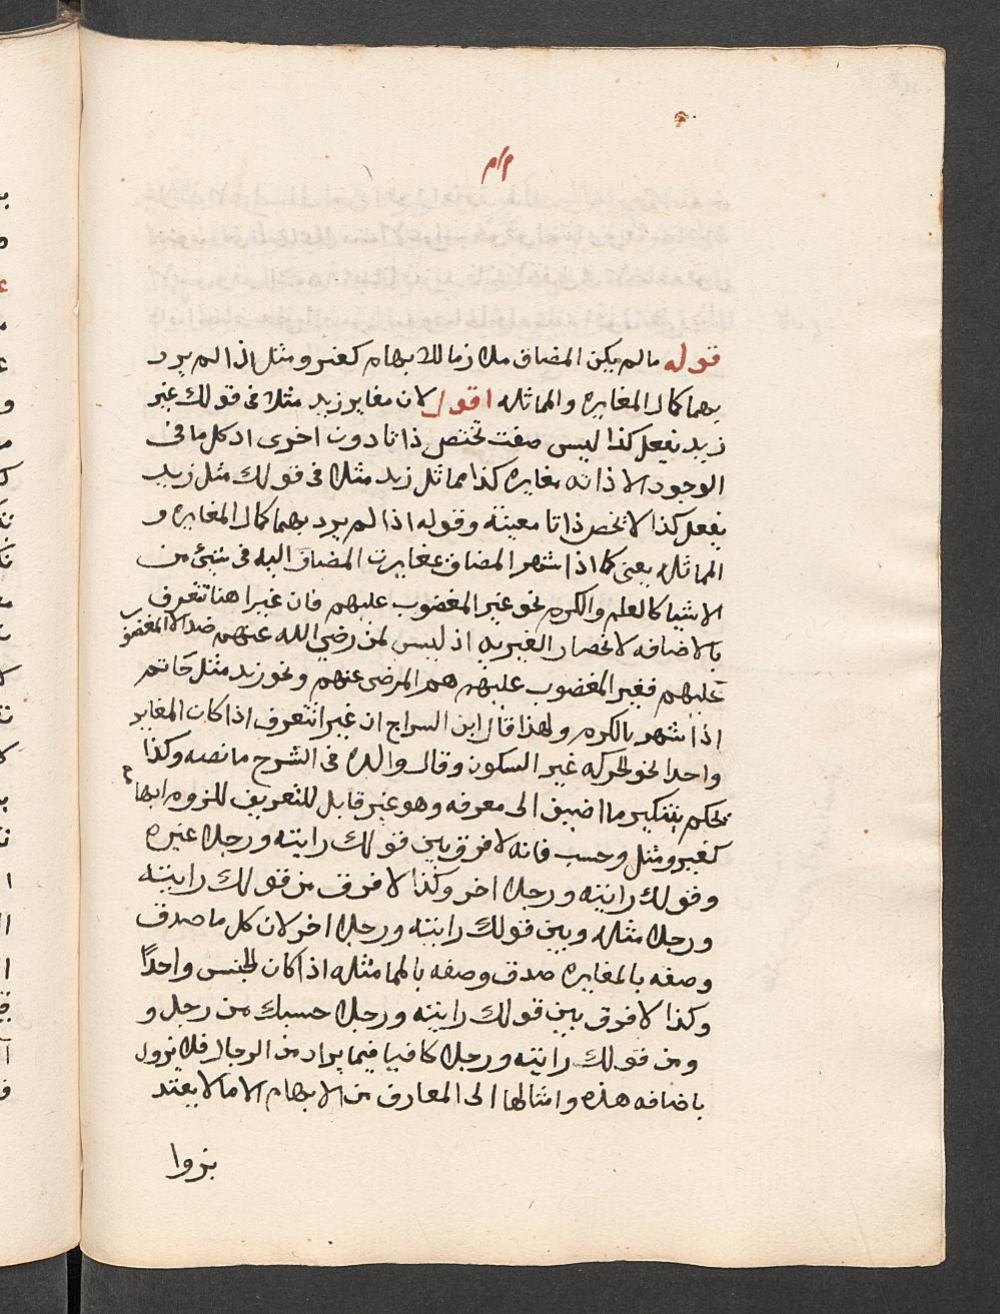 قوله ما لم يكن المضاف ملازما للابهام كغير ومثل اذا لم يرد
بهما كمال المغايره والمماثله اقول لان مغاير زيد مثلا فى قولك غير
زيد يفعل كذا ليس صفت تختص ذاتا دون اخرى اذ كل ما فى
الوجود الا ذاته مغايره كذا مماثل زيد مثلا فى قولك مثل زيد
يفعل كذا لا تخص ذاتا معينة وقوله اذا لم يرد بهما كمال المغايره و
المماثله يعنى كما اذا شهر المضاف بمغايرت المضاف اليه فى شىء من
الاشيا كالعلم والكره نحو غير المغضوب عليهم فان غيرا هنا تتعرف
بالاضافه لانحصار الغيريه اذ ليس لمن رضي الله عنهم ضد الا المغضوب
عليهم فغير المغضوب عليهم هم المرضى عنهم ونحو زيد مثل حاتم
اذا شهر بالكره ولهذا قال ابن السراج ان غيرا تتعرف اذا كان المغاير
واحدا نحو الحركه غير السكون وقال والده فى الشرح ما نصه وكذا
نحكم بتنكير ما اضيف الى معرفه وهو غير قابل للتعريف للزوم ابها م
كغير ومثل وحسب فانه لا فرق بين قولك رايته ورجلا غيره
وقولك رايته ورجلا اخر وكذا لا فرق من قولك رايته
ورجلا مثله وبين قولك رايته ورجلا اخر لان كل ما صدق
وصفه بالمغايره صدق وصفه بالمماثله اذا كان الجنس واحدًا
وكذا لا فرق بين قولك رايته ورجلا حسبك من رجل و
وبين قولك رايته ورجلا كافيا فيما يراد من الرجال فلا يزول
باضافه هذه وامثالها الى المعارف من الابهام الا ما لا يعتد
بزوا